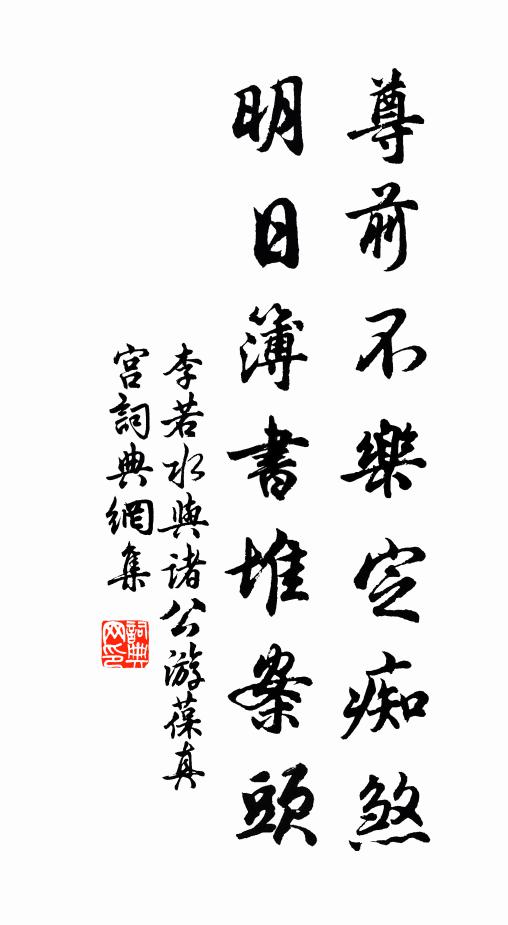 尊前不樂定痴煞
明日簿書堆案頭
李若水與諸公游葆真
宮詞典網集
詞典网印